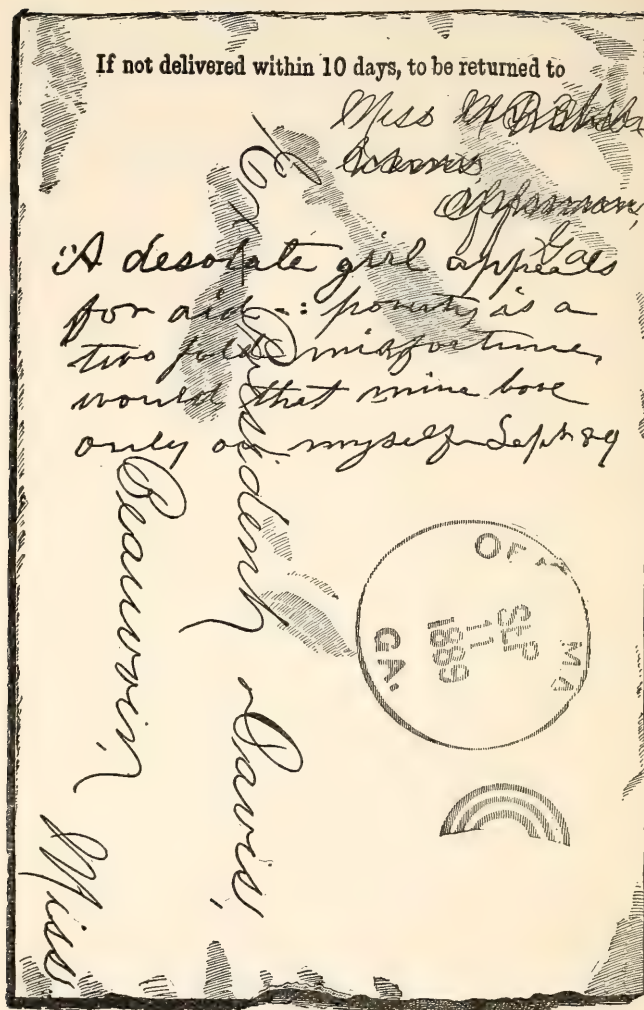 If not delivered within 10 days, to be returned to
Miss
Ga
"A desolate girl appeals
for aid -: poverty is a
two fold misfortune,
would that mine bore
only on myself—Sept 89
Ex President Davis,
Beauvoir, Miss
SEP
11
1889
GA.